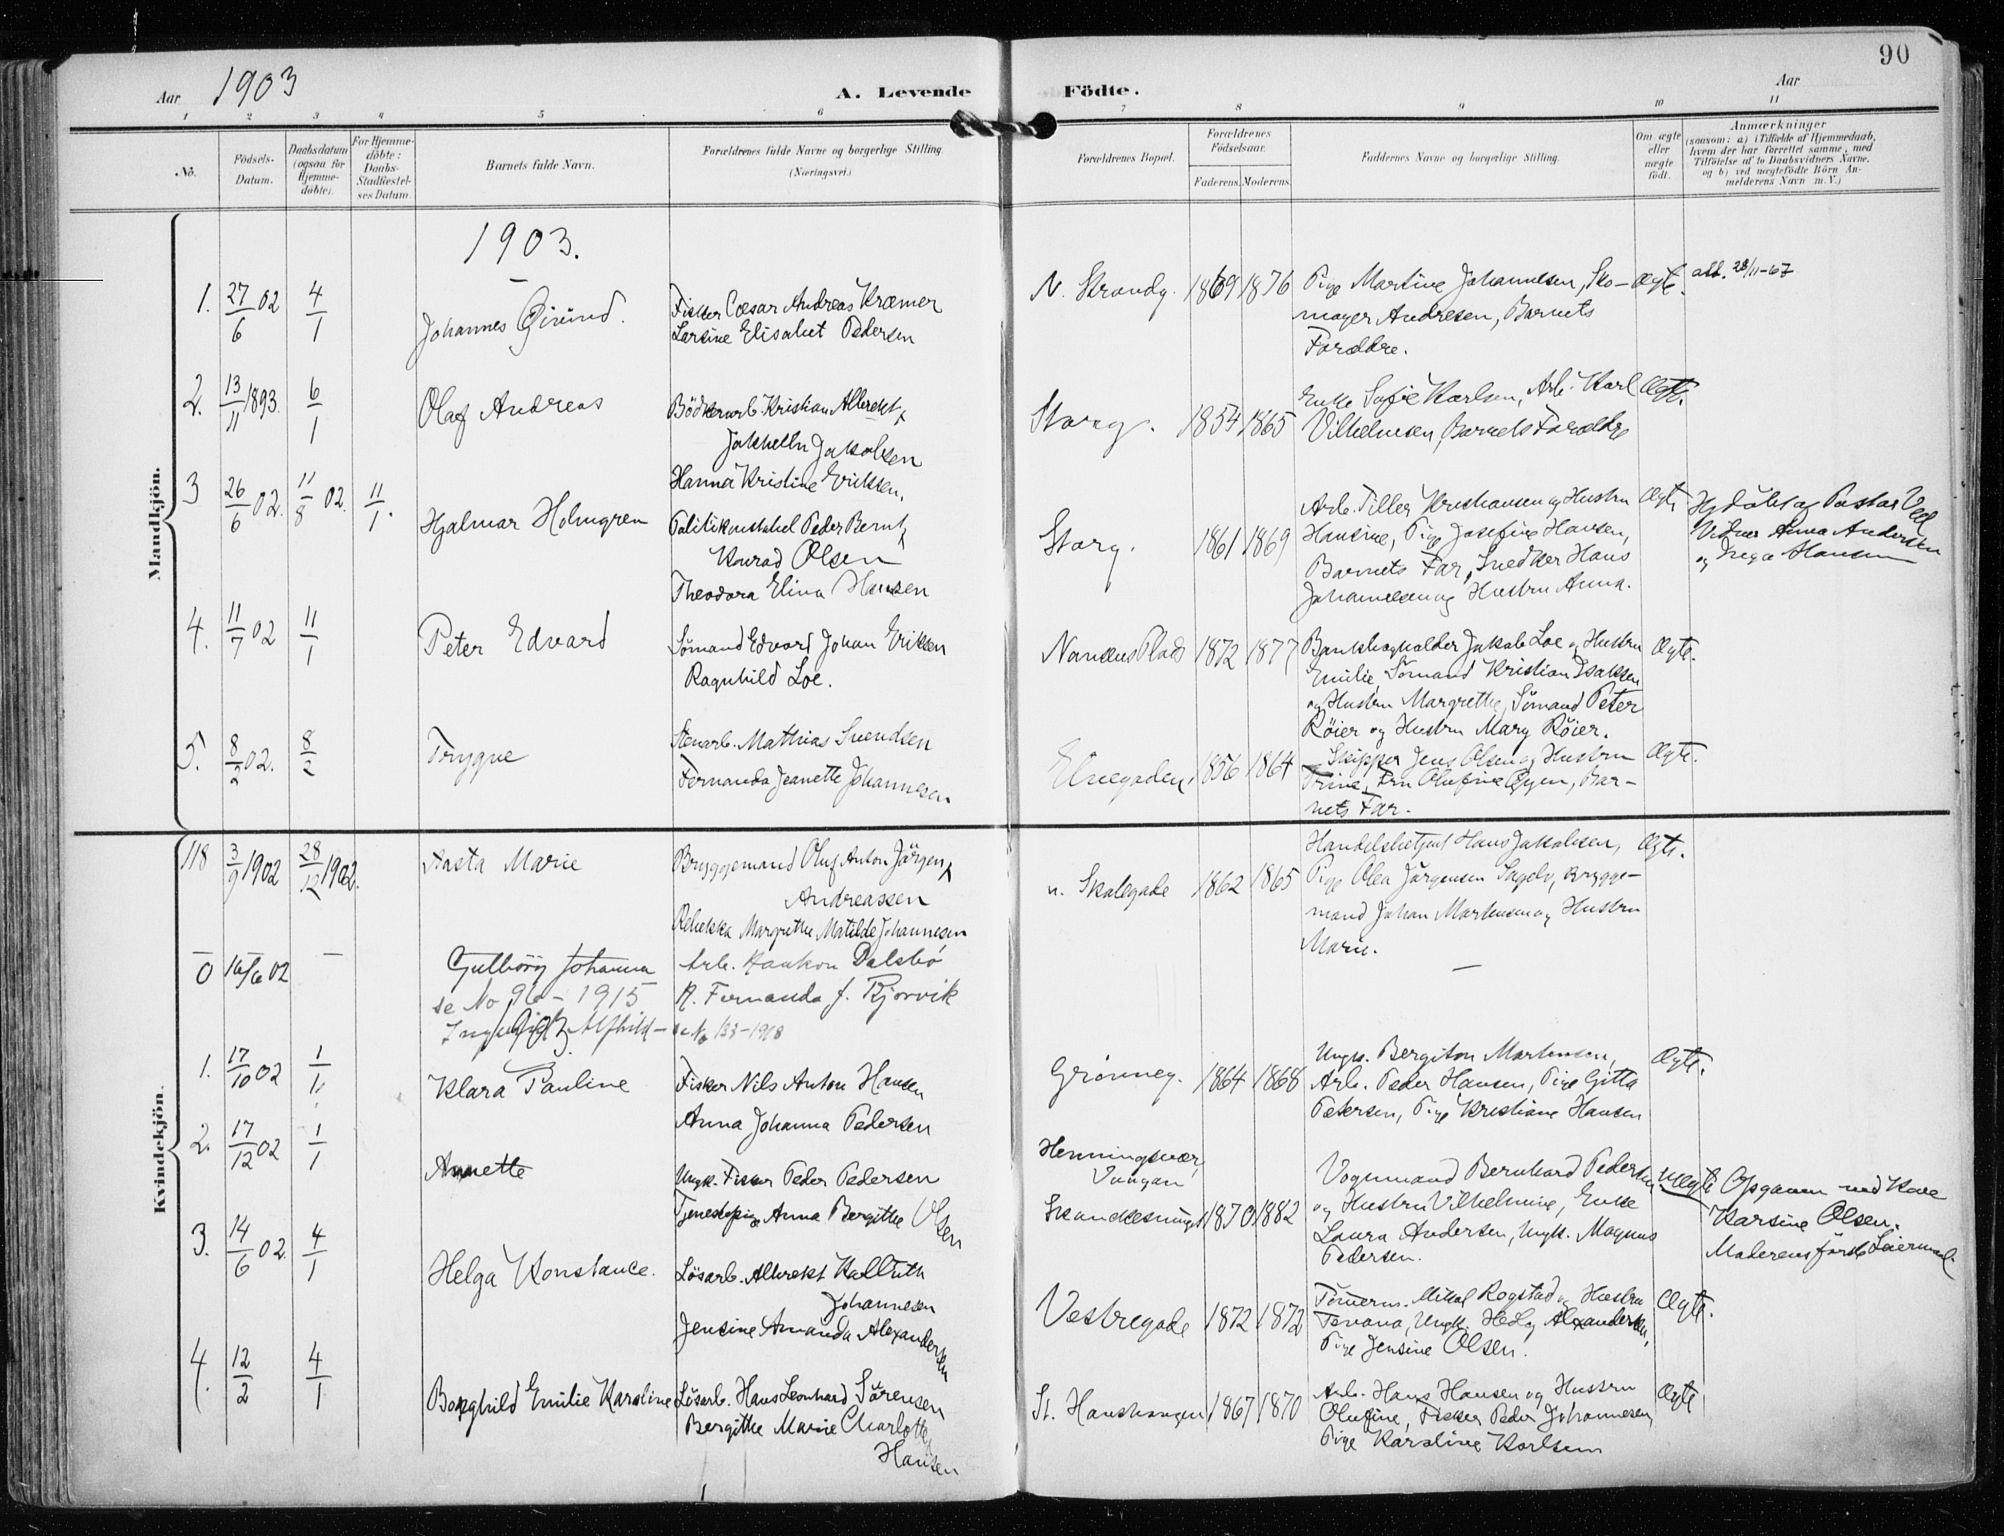 90
Aar 1903
A. Levende Födte.
Aar
1 2 3 4 5 6 7 8 9 10 11
No.
Födsels-Datum.
Daabsdatum (ogsaa for Hjemmedöbte).
For Hjemmedöbte: Daabs-Stadfæstelses Datum.
Barnets fulde Navn.
Forældrenes fulde Navne og borgerlige Stilling. (Næringsvei.)
Forældrenes Bopæl.
Forældrenes Födselsaar.
Faderens. Moderens.
Faddernes Navne og borgerlige Stilling.
Om ægte eller uægte födt.
Anmærkninger
(saasom: a) i Tilfælde af Hjemmedaab, hvem der har forrettet samme, med Tilföielse af to Daabsvidners Navne. og b) ved uægtefödte Börn Anmelderens Navn m. V.)
Mandkjön.
1903.
1. 27/6 02 4/1 Johannes
Fisker Cæsar Andreas Kræmer
Larsine Elisabet Pedersen
N. Strandg. 1869 1876
Pige Martine Johannesen, Sko-
mager Andresen, Barnets
Forældre.
Ægte.
28/11-67
2. 13/11 1893. 6/1 Olaf Andreas
Bödkerarb. Kristian Albrekt
Jakobsen
Hanna Kristine Eriksen.
Storg. 1854 1865
Enke Sofie Karlsen, Arb. Karl
Vilhelmsen, Barnets Forældre
Ægte.
3 26/6 02. 11/8 02. 11/1. Hjalmar Holmgren
Politikonstabel Peder Bernt
Konrad Olsen
Theodora Elina Hansen
Storg. 1861 1869
Arb. Tiller Kristiansen og Hustru
Hansine, Pige Josefine Hansen,
Barnets Far, Snedker Hans
Johannesen og Hustru Anna.
Ægte
Hjdöbt af Pastor Ved
Vidner Anna Andersen
og Inga Hansen
4. 11/7 02 11/1 Peter Edvard
Sömand Edvard Johan Eriksen
Ragnhild Loe.
Nansens Plads 1872 1877
Bankbogholder Jakob Loe og Hustru
Emilie, Sömand Kristian Isaksen
og Hustru Margrethe, Sömand Peter
Röier og Hustru Mary Röier.
Ægte.
5. 8/2 02. 8/2 Trygve
Stenarb. Mathias Svendsen
Fernanda Jeanette Johannesen
Elvegaden. 1856 1864
Skipper Jens Olsen og Hustru
Trine, Fru Olufine Øyen, Bar-
nets Far.
Ægte.
Kvindekjön.
118 3/9 1902 28/12 1902. Aasta Marie
Bryggemand Oluf Anton Jörgen
Andreassen
Rebekka Margrethe Matilde Johannesen
n. Skolegade 1862 1865
Handelsbetjent Hans Jakobsen,
Pige Olea Jörgensen Sagelv, Brygge-
mand Johan Martensen og Hustru
Marie.
Ægte.
0 16/6 02 — Gulborg Johanna
Arb. Haakon Dalsbö
se No 96 - 1915
H. Fernanda f. Kjorvik
Alfhild - se No 133-1918
1903
1. 17/10 02 1/1 Klara Pauline
Fisker Nils Anton Hansen
Anna Johanna Pedersen
Grönneg. 1864 1868
Ungk. Bergiton Martensen,
Arb. Peder Hansen, Pige Gitta
Petersen, Pige Kristiane Hansen
Ægte.
2. 17/12 02 1/1 Annette
Ungk. Fisker Peder Pedersen
Tjenestepige Anna Bergitte Olsen
Henningsvær,
Vaagan
1870 1882
Vognmand Bernhard Pedersen
og Hustru Vilhelmine, Enke
Laura Andersen, Ungk. Magnus
Pedersen.
Uægte
Opgaven ved Kone
Karsine Olsen.
Moderens förste Leiermaal.
3. 14/6 02. 4/1 Helga Konstance.
Lösarb. Albrekt
Johannesen
Jensine Amanda Alexandersen
Vestregade 1872 1872
Tömerm. Mikal Rogstad og Hustru
Ungk. Hedly Alexandersen,
Pige Jensine Olsen.
Ægte.
4. 12/2 4/1 Borghild Emilie Karoline
Lösarb. Hans Leonhard Sörensen
Bergitte Marie Charlotte
Hansen
St. Hanshaugen 1867 1870
Arb. Hans Hansen og Hustru
Olufine, Fisker Peder Johannesen,
Pige Karoline Karlsen
Ægte